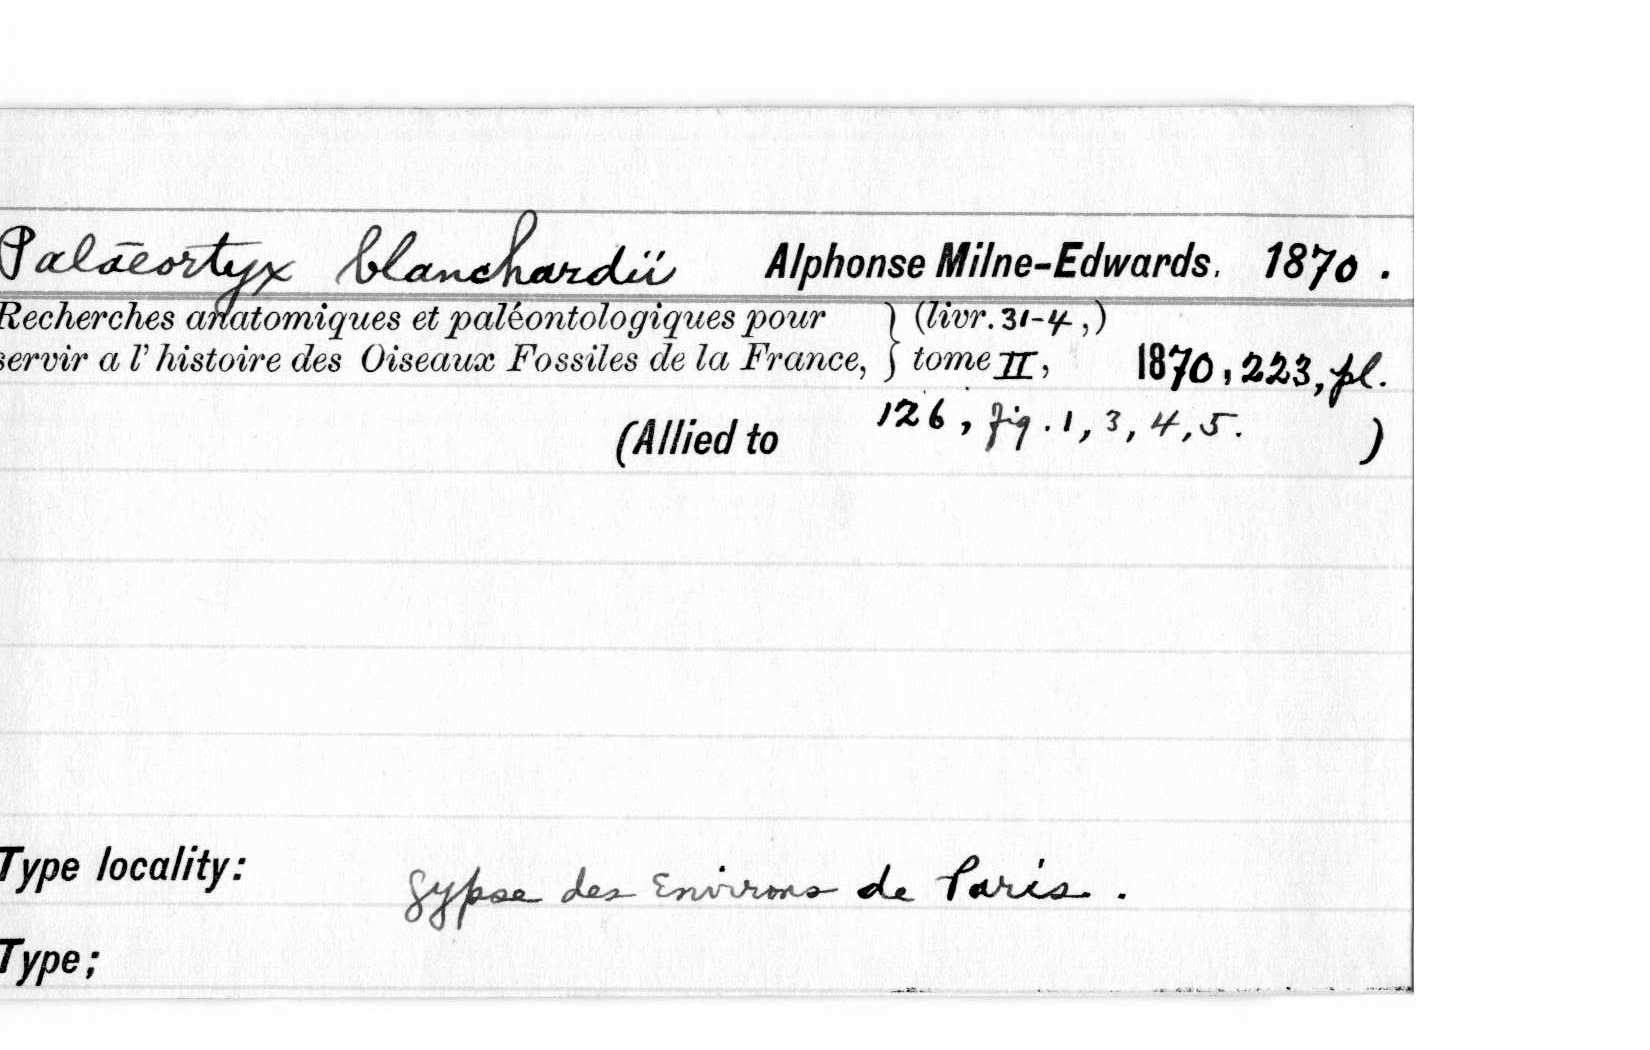 Palaeortyx blanchardii Alphonse Milne-Edwards. 1870.
Recherches anatomiques et paléontologiques pour } (livr. 31-4,)
servir a l'histoire des Oiseaux Fossiles de la France, } tome II, 1870, 223, pl.
126, fig. 1, 3, 4, 5.
(Allied to )
Type locality: gypse des Environs de Paris.
Type;